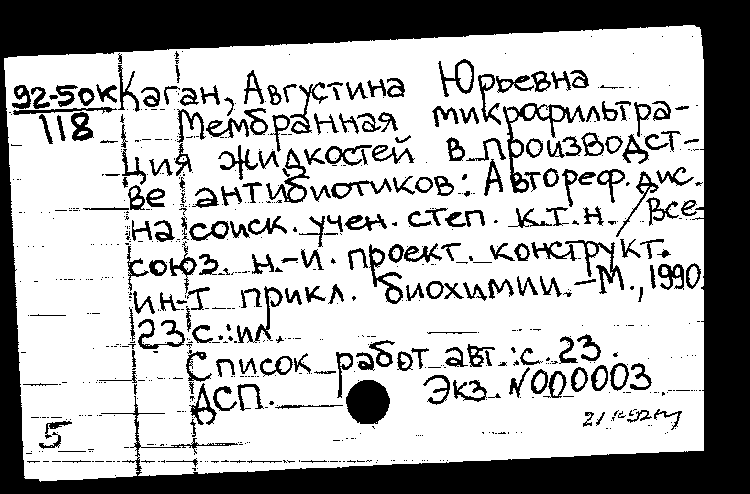 92-50к Каган, Августина Юрьевна
118 Мембранная микрофильтра-
ция жидкостей в производст-
ве антибиотиков: Автореф. дис.
на соиск. учен. степ. к.т.н. / Все-
союз. н.-и. проект. конструкт.
ин-т прикл. биохимии. - М., 1990.
23 с.: ил.
Список работ авт.: с. 23.
ДСП. Экз. N000003
5